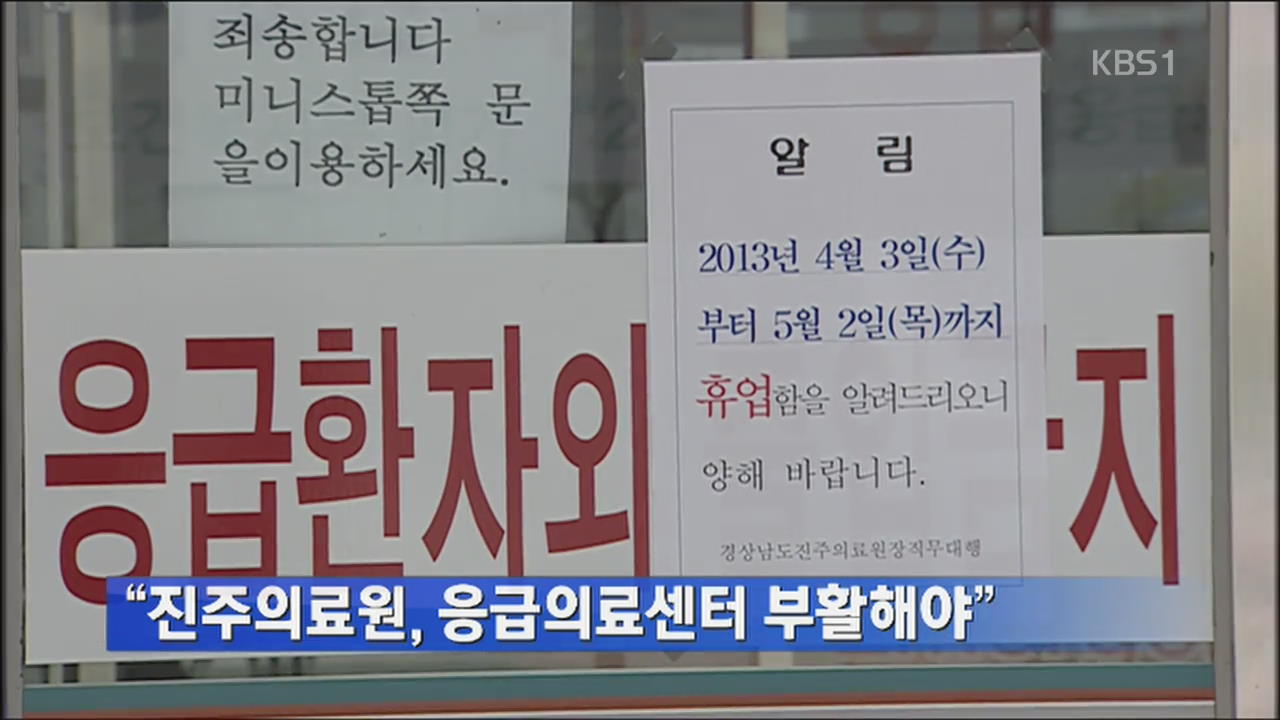 죄송합니다
미니스톱쪽 문
을이용하세요.
KBS1
알 림
2013년 4월 3일(수)
부터 5월 2일(목)까지
휴업함을 알려드리오니
양해 바랍니다.
경상남도진주의료원장직무대행
응급환자외
지
“진주의료원, 응급의료센터 부활해야”